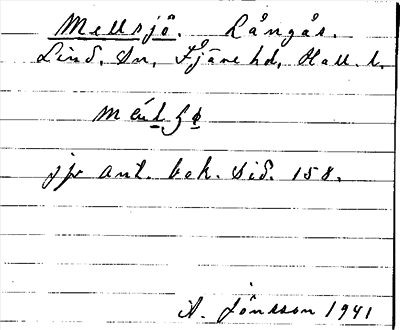 Mellsjö. Långås.
Lind. sn, Fjäre hd, Hall. l.
jfr ant. bek. sid. 158.
A. Jönsson 1941